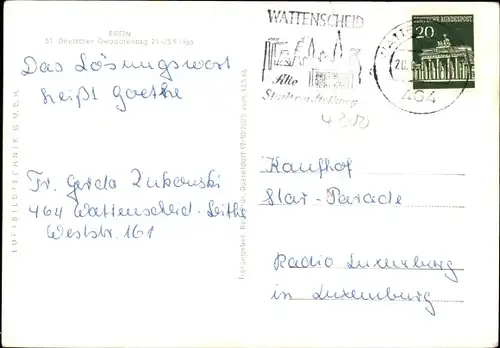 ESSEN
51. Deutscher Geodätentag 21.-23.9.1966
Das Lösungswort
heißt Goethe
Fr. Gerda Zukowski
464 Wattenscheid-Leithe
Weststr. 161
LUFTBILDTECHNIK G.M.B.H.
Freigegeben Reg.-Präs. Düsseldorf
WATTENSCHEID
Alte
DEUTSCHE BUNDESPOST
20
464
Kaufhof
Star-Parade
Radio Luxemburg
in Luxemburg